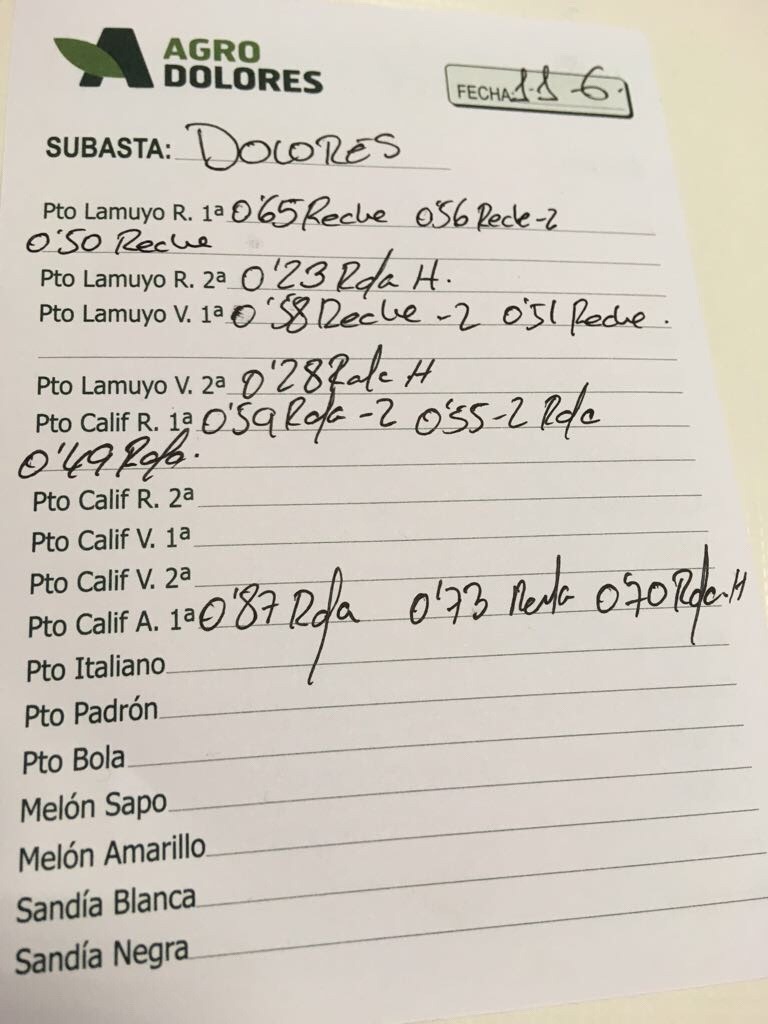 AGRO
DOLORES
FECHA: 11-6.
SUBASTA: DOLORES
Pto Lamuyo R. 1ª 0'65 Reche 0'56 Reche-2
0'50 Reche
Pto Lamuyo R. 2ª 0'23 Rda H.
Pto Lamuyo V. 1ª 0'58 Reche -2 0'51 Reche.
Pto Lamuyo V. 2ª 0'28 Rda H
Pto Calif R. 1ª 0'59 Rda -2 0'55-2 Rda
0'49 Rda.
Pto Calif R. 2ª
Pto Calif V. 1ª
Pto Calif V. 2ª
Pto Calif A. 1ª 0'87 Rda 0'73 0'70 Rda.H
Pto Italiano
Pto Padrón
Pto Bola
Melón Sapo
Melón Amarillo
Sandía Blanca
Sandía Negra